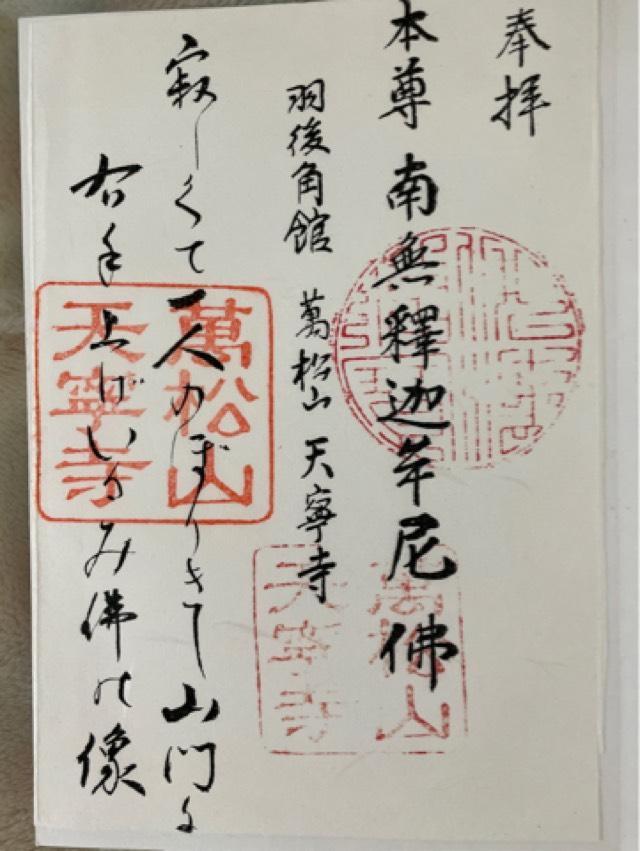 奉拝
本尊 南無釋迦牟尼佛
羽後角館 萬松山 天寧寺
寂しくて一人のぼりきし山門に
右手上げいるみ佛の像
萬松山
天寧寺
萬松山
天寧寺